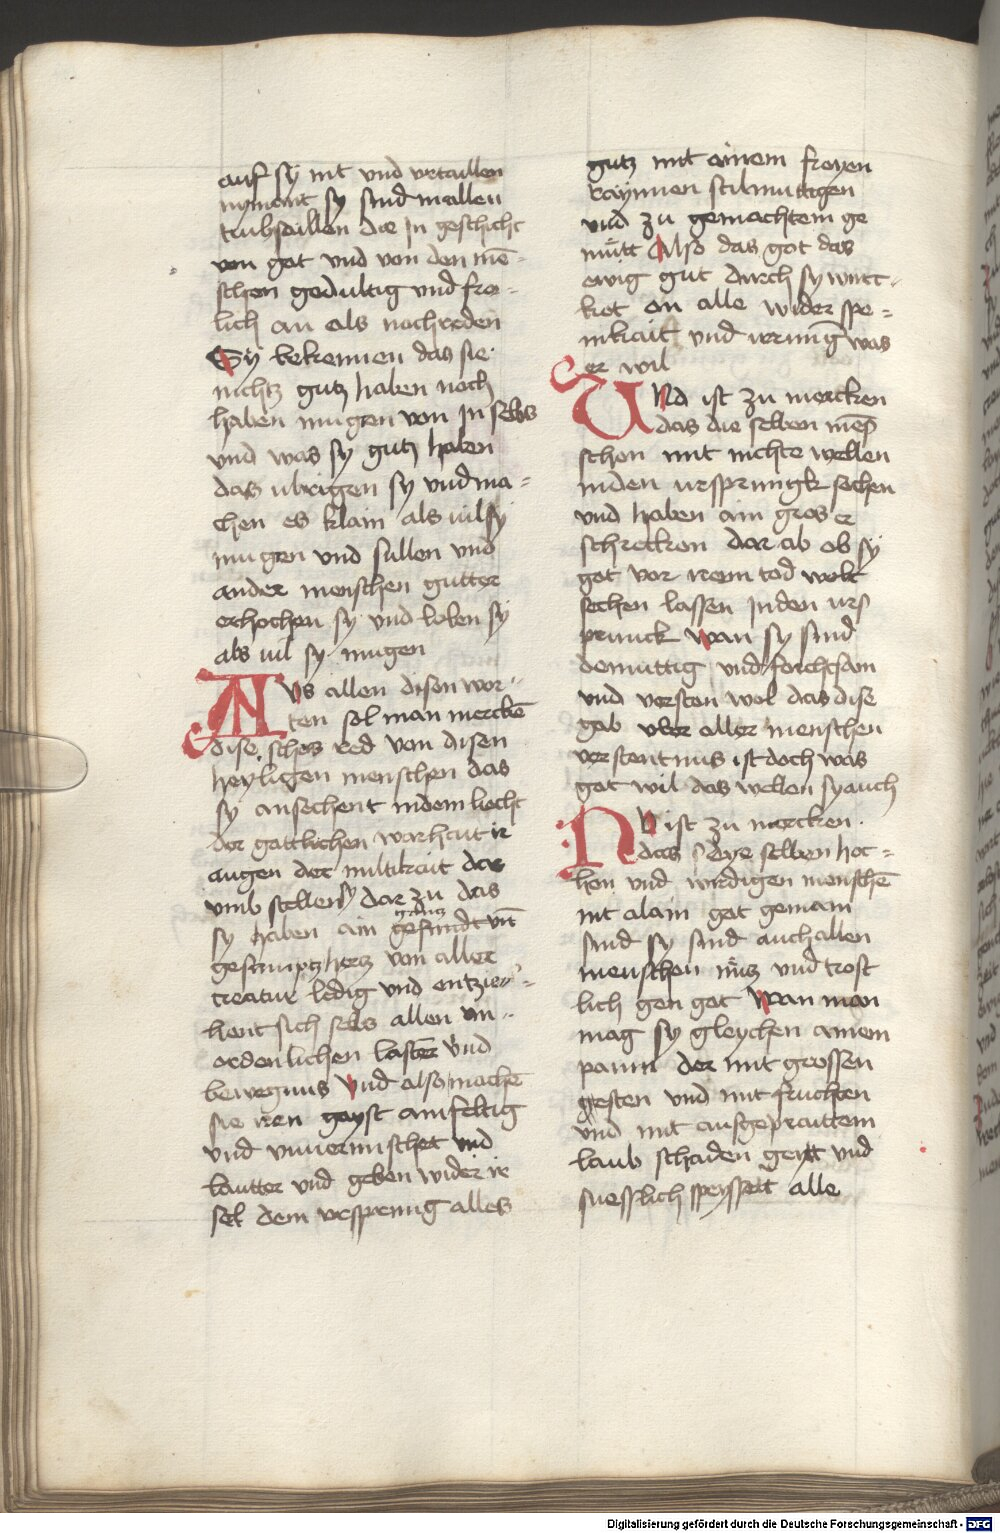 auf sy nit vnd vrtaillen
nymant sy sind in allen
trubsaillen die In geschicht
von got vnd von den mē-
schen gedultig vnd fro-
lich an als nochreden
Sy bekennen das sie
nichtz gutz haben noch
haben mugen von In selbs
vnd was sy gutz haben
das ubrigen sy vnd ma-
chen es klain als uil sy
mugen vnd sullen vnd
ander menschen gutter
erhochen sy vnd loben sy
als uil sy mugen
AVs allen disen wor-
ten sol man merckē
dise schez red von disen
heyligen menschen das
sy ansechent in dem liecht
der gottlichen warhait ir
augen der miltikait dar
vmb stellen sy dar zu das
sy haben ain gantz gesundt vn̄
gesampz hertz von aller
creatur ledig vnd entzie-
hent sich selbs allen vn-
ordenlichen laster vnd
bewegnus Vnd also machē
sie iren geyst ainfeltig
vnd vnuermischet vnd
lautter vnd geben wider ir
sel dem vrsprung alles
gutz mit ainem freyen
raynnen stilmuttigen
vnd zu gemachtem ge
mütt Also das got das
ewig gut durch sy wurc-
ket on alle wider spe-
nikait vnd irrung was
er wil
VNd ist zu mercken
das die selben mēs
schen mit nichte wellen
in den ursprungk sechen
vnd haben ain gros er
schrecken dar ab ob sy
got vor irem tod wolt
sechen lassen In den urs
prunck Wan sy sind
demuttig vnd forchtsam
vnd versten wol das dise
gab vber aller menschen
verstentnus ist doch was
got wil das wellen sy auch
NV ist zu mercken
das dye selben hoc-
hen vnd wirdigen menschē
nit alain got gemain
sind sy sind auch allen
menschen nütz vnd trost
lich gen got Wan man
mag sy gleychen ainem
paum der mit grossen
gesten vnd mit fruchten
vnd mit aufgepraittem
laub schaden geytt vnd
suesslich speyssett alle
Digitalisierung gefördert durch die Deutsche Forschungsgemeinschaft - DFG